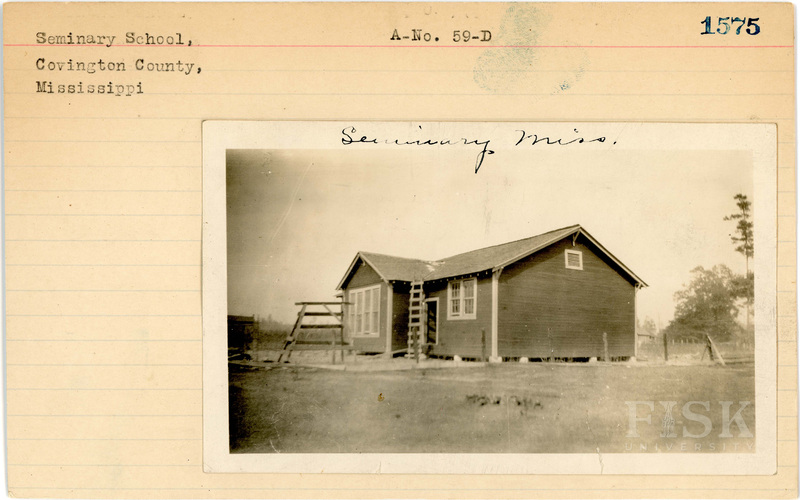 Seminary School,
A-No. 59-D
1575
Covington County,
Mississippi
Seminary Miss.
FISK
UNIVERSITY